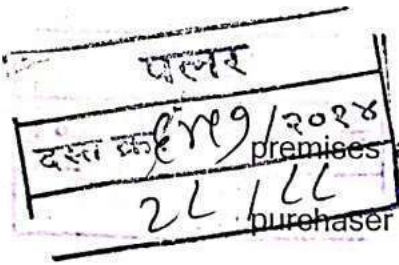 पलर
दस्त क्र /२०१४ premises
२८ /८८ purchaser